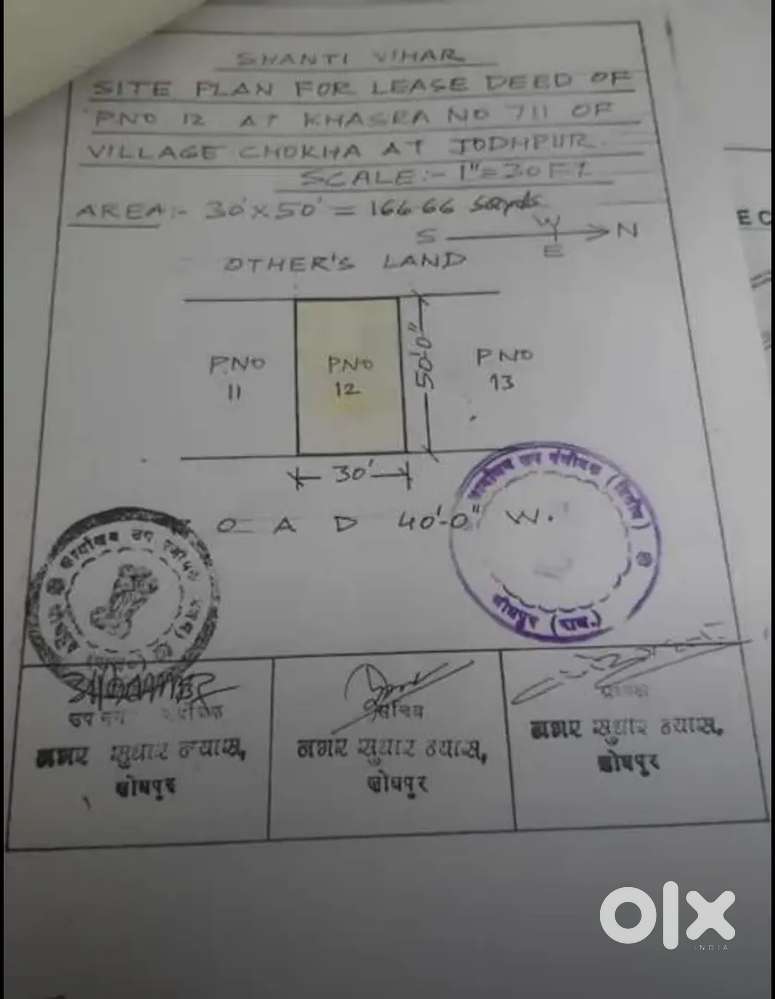 SHANTI VIHAR
SITE PLAN FOR LEASE DEED OF
PNO 12 AT KHASRA NO 711 OF
VILLAGE CHOKHA AT JODHPUR.
SCALE:- 1"=30FT
AREA:- 30'X50' = 166.66 Sqyds
S W E N
OTHER'S LAND
P.NO 11
PNO 12
50'-0"
PNO 13
30'
O A D 40'-0" W.
जोधपुर (राज.)
सचिव
नगर सुधार न्यास,
नगर सुधार न्यास,
नगर सुधार न्यास,
जोधपुर
जोधपुर
जोधपुर
EC
olx
INDIA